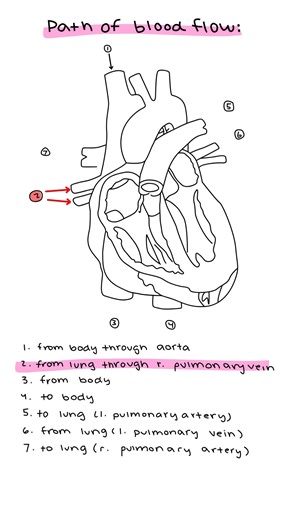 Path of blood flow:
1
5
6
7
2
3
4
1. from body through aorta
2. from lung through r. pulmonary vein
3. from body
4. to body
5. to lung (l. pulmonary artery)
6. from lung (l. pulmonary vein)
7. to lung (r. pulmonary artery)